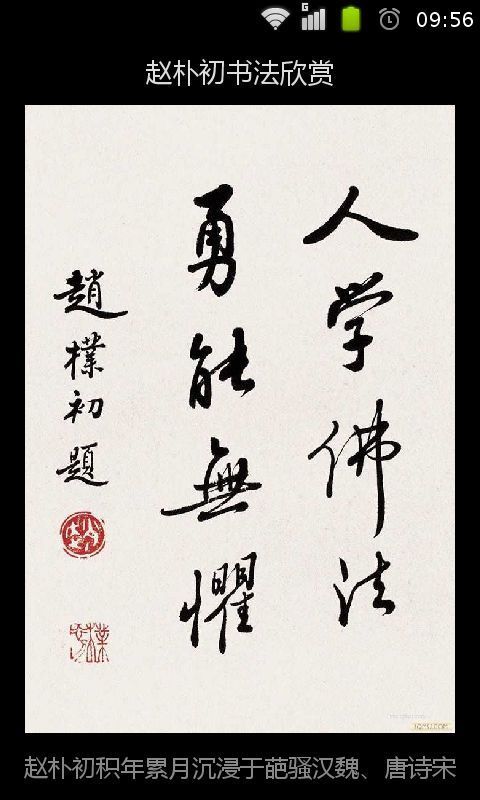 09:56
赵朴初书法欣赏
人学佛法
勇能無懼
趙樸初題
赵朴初积年累月沉浸于葩骚汉魏、唐诗宋